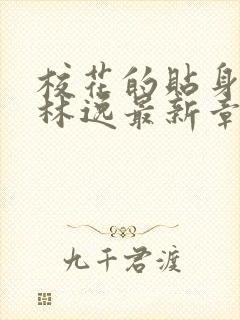 校花的贴身
林逸最新章
九千君渡